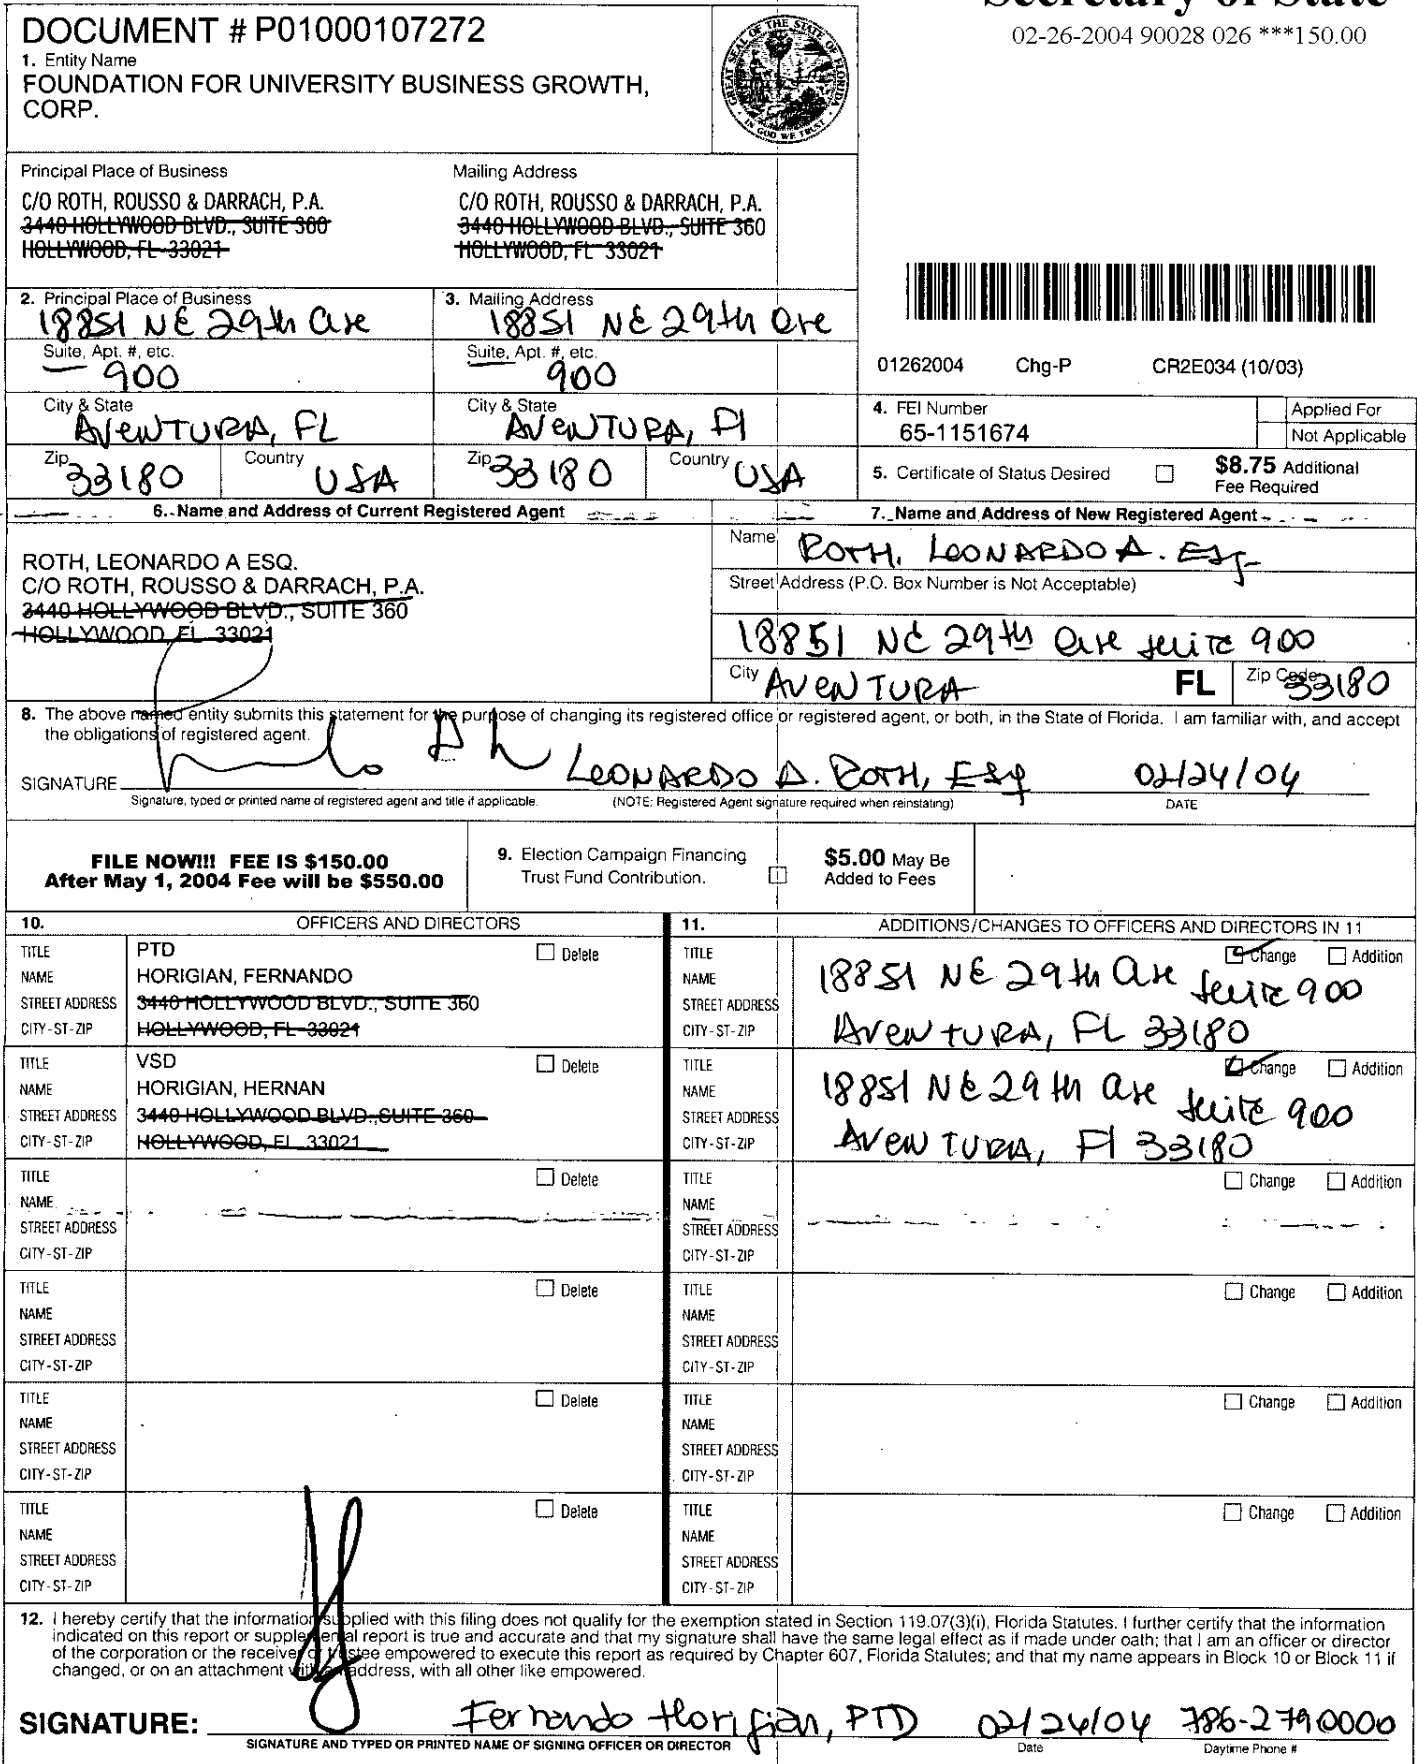 Secretary of State
02-26-2004 90028 026 ***150.00
DOCUMENT # P01000107272
1. Entity Name
FOUNDATION FOR UNIVERSITY BUSINESS GROWTH,
CORP.
GREAT SEAL OF THE STATE OF FLORIDA
IN GOD WE TRUST
Principal Place of Business
C/O ROTH, ROUSSO & DARRACH, P.A.
3440 HOLLYWOOD BLVD., SUITE 360
HOLLYWOOD, FL 33021
Mailing Address
C/O ROTH, ROUSSO & DARRACH, P.A.
3440 HOLLYWOOD BLVD., SUITE 360
HOLLYWOOD, FL 33021
2. Principal Place of Business
18851 NE 29th Ave
3. Mailing Address
18851 NE 29th Ave
Suite, Apt. #, etc.
900
Suite, Apt. #, etc.
900
City & State
AVENTURA, FL
City & State
AVENTURA, Fl
Zip 33180 Country USA
Zip 33180 Country USA
01262004 Chg-P CR2E034 (10/03)
4. FEI Number
65-1151674
Applied For
Not Applicable
5. Certificate of Status Desired
$8.75 Additional
Fee Required
6. Name and Address of Current Registered Agent
ROTH, LEONARDO A ESQ.
C/O ROTH, ROUSSO & DARRACH, P.A.
3440 HOLLYWOOD BLVD., SUITE 360
HOLLYWOOD FL 33021
7. Name and Address of New Registered Agent
Name ROTH, LEONARDO A. Esq.
Street Address (P.O. Box Number is Not Acceptable)
18851 NE 29th Ave suite 900
City AVENTURA FL Zip Code 33180
8. The above named entity submits this statement for the purpose of changing its registered office or registered agent, or both, in the State of Florida. I am familiar with, and accept
the obligations of registered agent.
SIGNATURE LEONARDO A. ROTH, ESq 02/24/04
Signature, typed or printed name of registered agent and title if applicable. (NOTE: Registered Agent signature required when reinstating) DATE
FILE NOW!!! FEE IS $150.00
After May 1, 2004 Fee will be $550.00
9. Election Campaign Financing
Trust Fund Contribution.
$5.00 May Be
Added to Fees
10. OFFICERS AND DIRECTORS
11. ADDITIONS/CHANGES TO OFFICERS AND DIRECTORS IN 11
TITLE PTD Delete
NAME HORIGIAN, FERNANDO
STREET ADDRESS 3440 HOLLYWOOD BLVD., SUITE 360
CITY-ST-ZIP HOLLYWOOD, FL 33021
TITLE Change Addition
NAME 18851 NE 29th Ave suite 900
STREET ADDRESS
CITY-ST-ZIP AVENTURA, FL 33180
TITLE VSD Delete
NAME HORIGIAN, HERNAN
STREET ADDRESS 3440 HOLLYWOOD BLVD., SUITE 360
CITY-ST-ZIP HOLLYWOOD, FL 33021
TITLE Change Addition
NAME 18851 NE 29th Ave suite 900
STREET ADDRESS
CITY-ST-ZIP AVENTURA, Fl 33180
TITLE Delete
NAME
STREET ADDRESS
CITY-ST-ZIP
TITLE Change Addition
NAME
STREET ADDRESS
CITY-ST-ZIP
TITLE Delete
NAME
STREET ADDRESS
CITY-ST-ZIP
TITLE Change Addition
NAME
STREET ADDRESS
CITY-ST-ZIP
TITLE Delete
NAME
STREET ADDRESS
CITY-ST-ZIP
TITLE Change Addition
NAME
STREET ADDRESS
CITY-ST-ZIP
TITLE Delete
NAME
STREET ADDRESS
CITY-ST-ZIP
TITLE Change Addition
NAME
STREET ADDRESS
CITY-ST-ZIP
12. I hereby certify that the information supplied with this filing does not qualify for the exemption stated in Section 119.07(3)(i), Florida Statutes. I further certify that the information
indicated on this report or supplemental report is true and accurate and that my signature shall have the same legal effect as if made under oath; that I am an officer or director
of the corporation or the receiver or trustee empowered to execute this report as required by Chapter 607, Florida Statutes; and that my name appears in Block 10 or Block 11 if
changed, or on an attachment with an address, with all other like empowered.
SIGNATURE: Fernando Horigian, PTD 02/24/04 786-2790000
SIGNATURE AND TYPED OR PRINTED NAME OF SIGNING OFFICER OR DIRECTOR Date Daytime Phone #